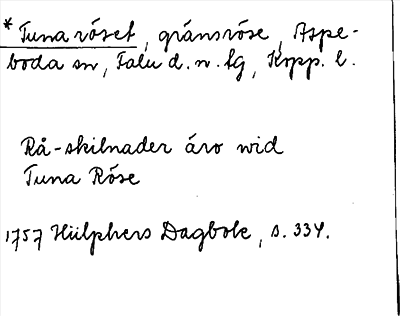 * Tuna röset, gränsröse, Aspe-
boda sn, Falu d. n. fg, Kopp. l.
Rå-skilnader äro wid
Tuna Röse
1757 Hülphers Dagbok, s. 334.